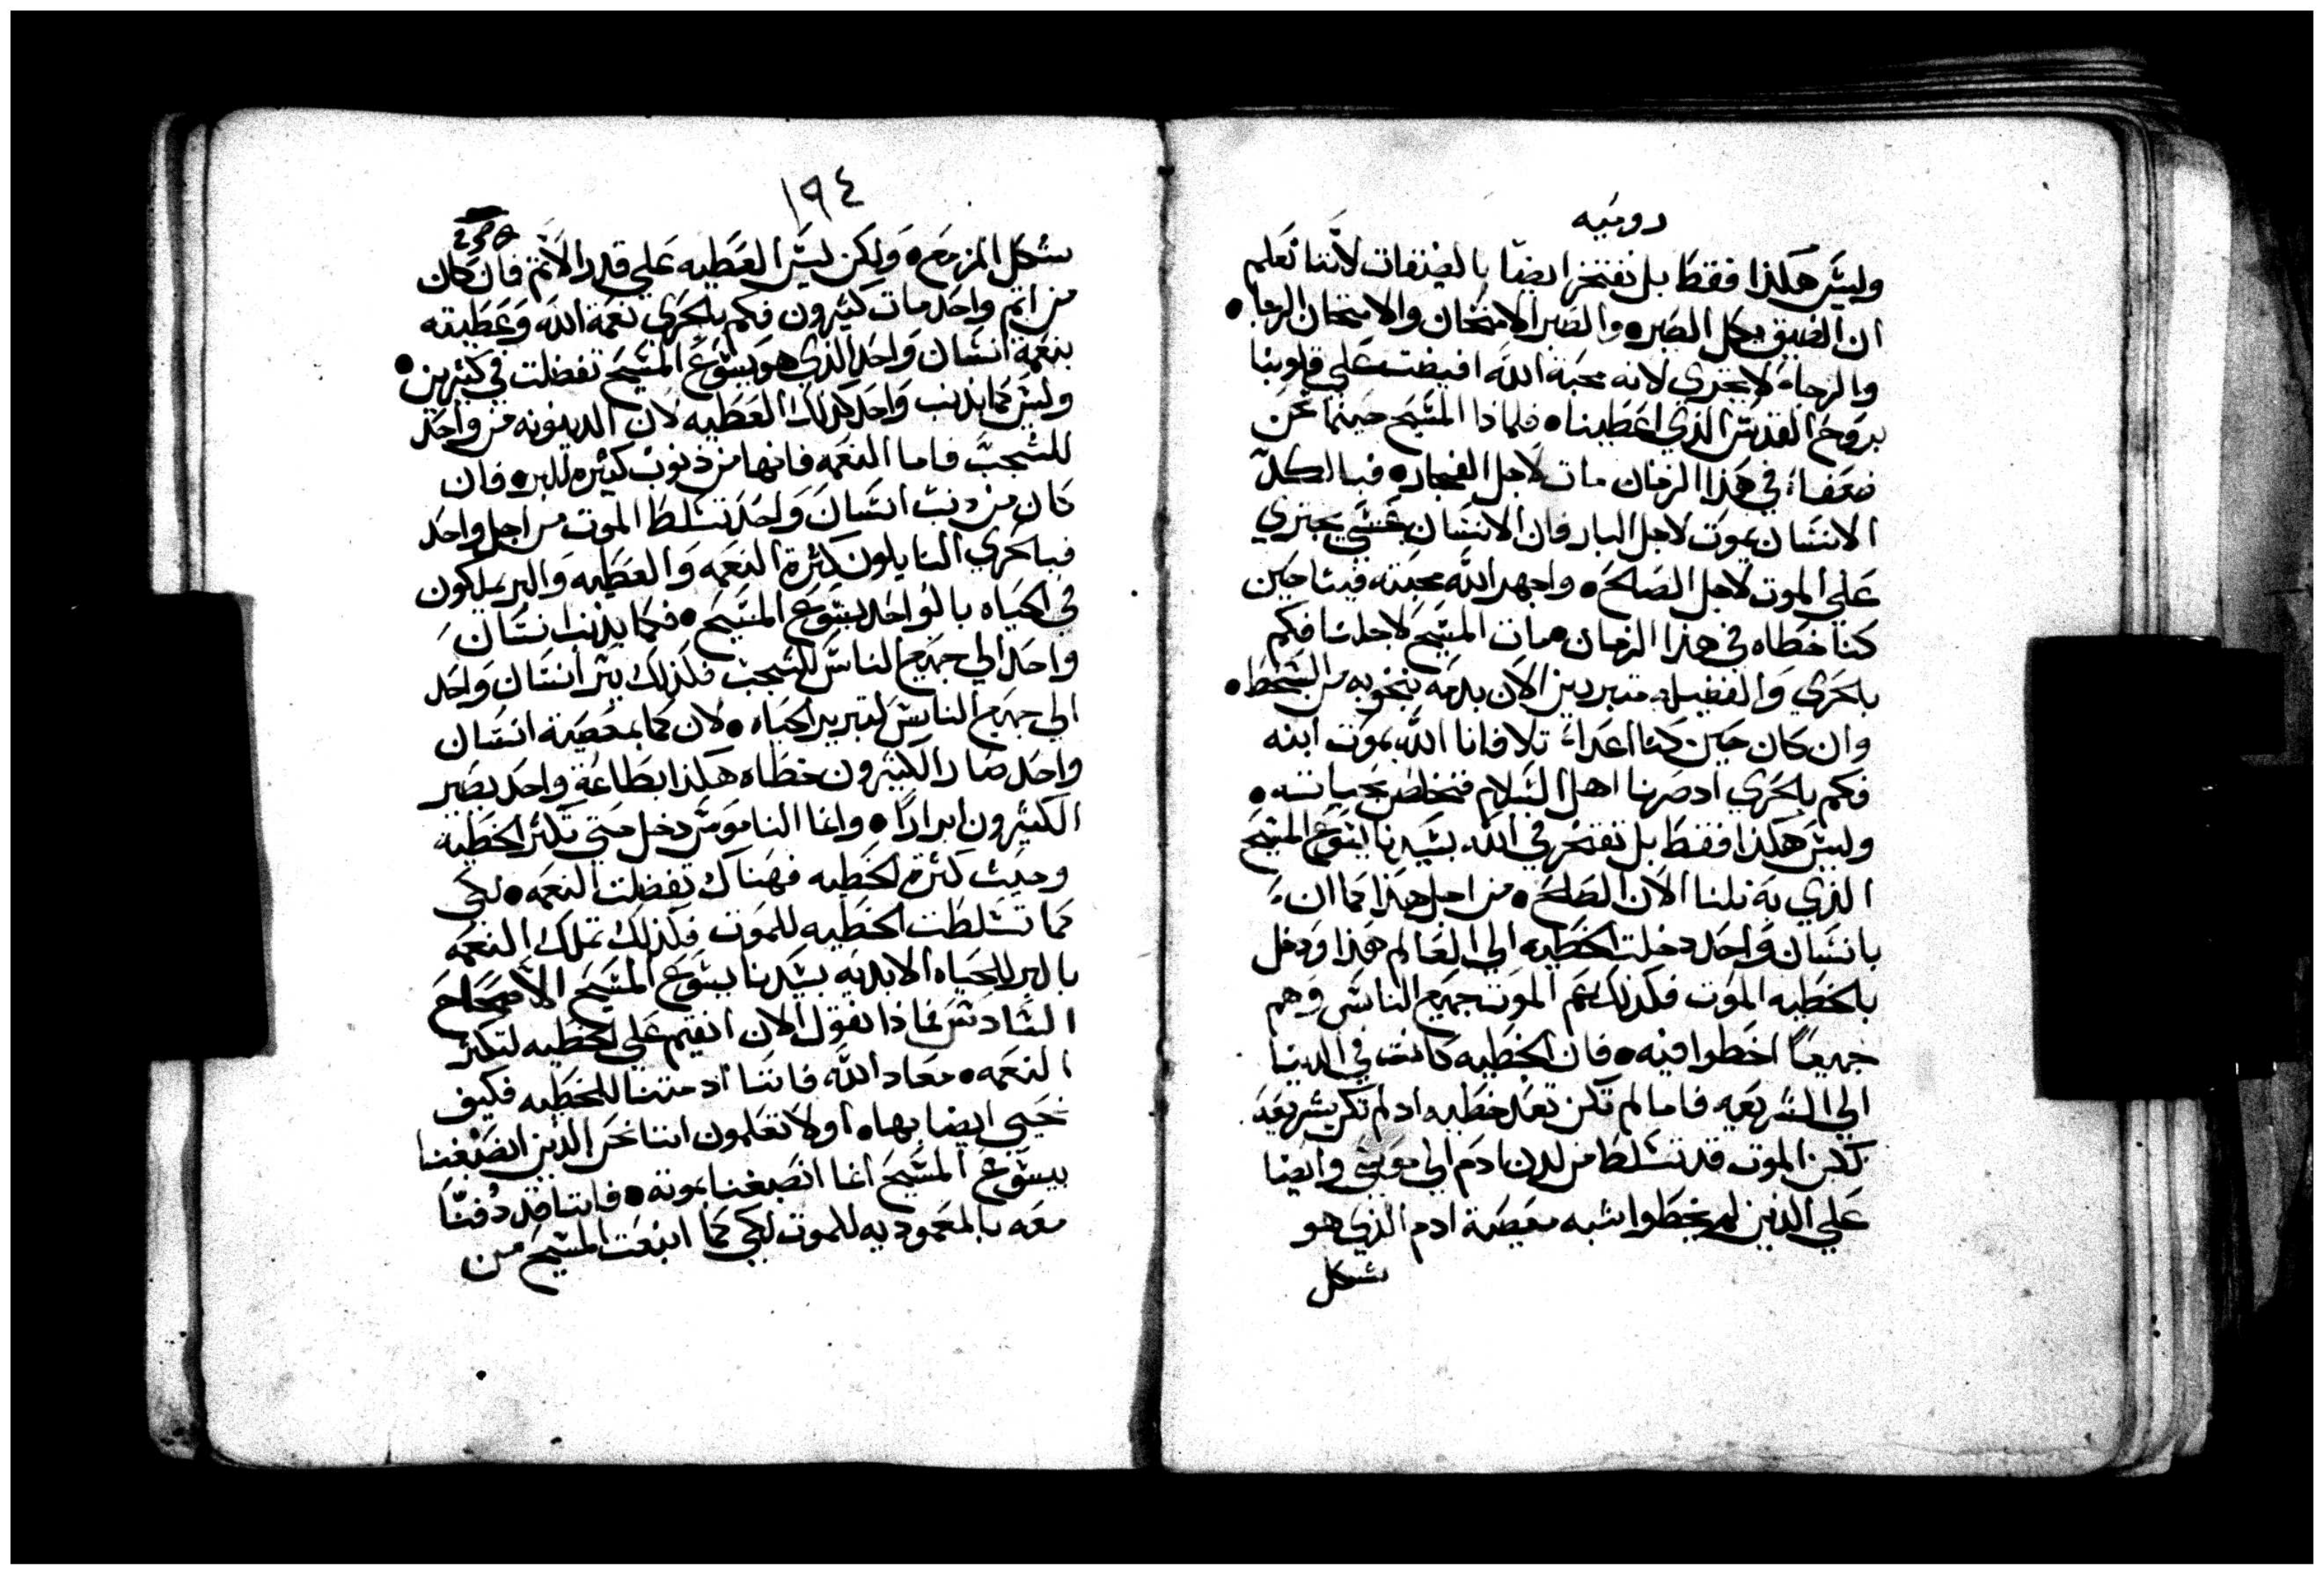 روميه
وليس هكذا فقط بل نفتخر ايضا بالضيقات لاننا نعلم
ان الضيق يكمل الصبر • والصبر الامتحان والامتحان الرجا •
والرجاء لا يخزي لانه محبة الله افيضت علي قلوبنا
بروح القدس الذي اعطينا • فلماذا المسيح حينما نحن
ضعفاء في هذا الزمان مات لاجل الفجار • فبالكل
الانسان يموت لاجل البار فان الانسان عسي يجتري
علي الموت لاجل الصالح • واجهر الله محبته فينا حين
كنا خطاه في هذا الزمان مات المسيح لاجلنا فكم
بالحري والفضيل متبررين الان بدمه ننجو به من السخط •
وان كان حين كنا اعداء تلافانا الله بموت ابنه
فكم بالحري اد صرنا اهل السلام فنخلص بحياته •
وليس هكذا فقط بل نفتخر في الله بسيدنا يسوع المسيح
الذي به نلنا الان الصلح • من اجل هذا كما ان
بانسان واحد دخلت الخطيه الي العالم هذا ودخل
بالخطيه الموت فكذلك يتم الموت جميع الناس وهم
جميعا اخطوا فيه • فان الخطيه كانت في الدنيا
الي الشريعه فاما لم تكن تعد خطيه اد لم تكن شريعه
لكن الموت قد تسلط من لدن ادم الي موسي وايضا
علي الذين لم يخطوا شبه معصية ادم الذي هو
شكل
١٩٤
شكل المزمع • ولكن ليس العطيه علي قدر الاثم فان كان
من اثم واحد مات كثيرون فكم بالحري نعمة الله وعطيته
بنعمة انسان واحد الذي هو يسوع المسيح تفضلت في كثيرين •
وليس كما بذنب واحد كذلك العطيه لان الدينونه من واحد
للشجب فاما النعمه فانها من ذنوب كثيره للبر • فان
كان من ذنب انسان واحد تسلط الموت من اجل واحد
فبالحري النايلون كثرة النعمه والعطيه والبر يملكون
في الحياه بالواحد يسوع المسيح • فكما بذنب انسان
واحد الي جميع الناس للشجب فكذلك ببر انسان واحد
الي جميع الناس لتبرير الحياه • لان كما بمعصية انسان
واحد صار الكثيرون خطاه هكذا بطاعة واحد يصير
الكثيرون ابرارا • وانما الناموس دخل حتي تكثر الخطيه
وحيث كثرة الخطيه فهناك تفضلت النعمه • لكي
كما تسلطت الخطيه للموت فكذلك تملك النعمه
بالبر للحياه الابديه بسيدنا يسوع المسيح الاصحاح
السادس فماذا نقول الان انقيم علي الخطيه لتكثر
النعمه • معاد الله فاننا اد متنا للخطيه فكيف
نحيي ايضا بها • او لا تعلمون اننا نحن الذين انصبغنا
بيسوع المسيح انما انصبغنا بموته • فاننا قد دُفنّا
معه بالمعموديه للموت لكي كما انبعث المسيح من